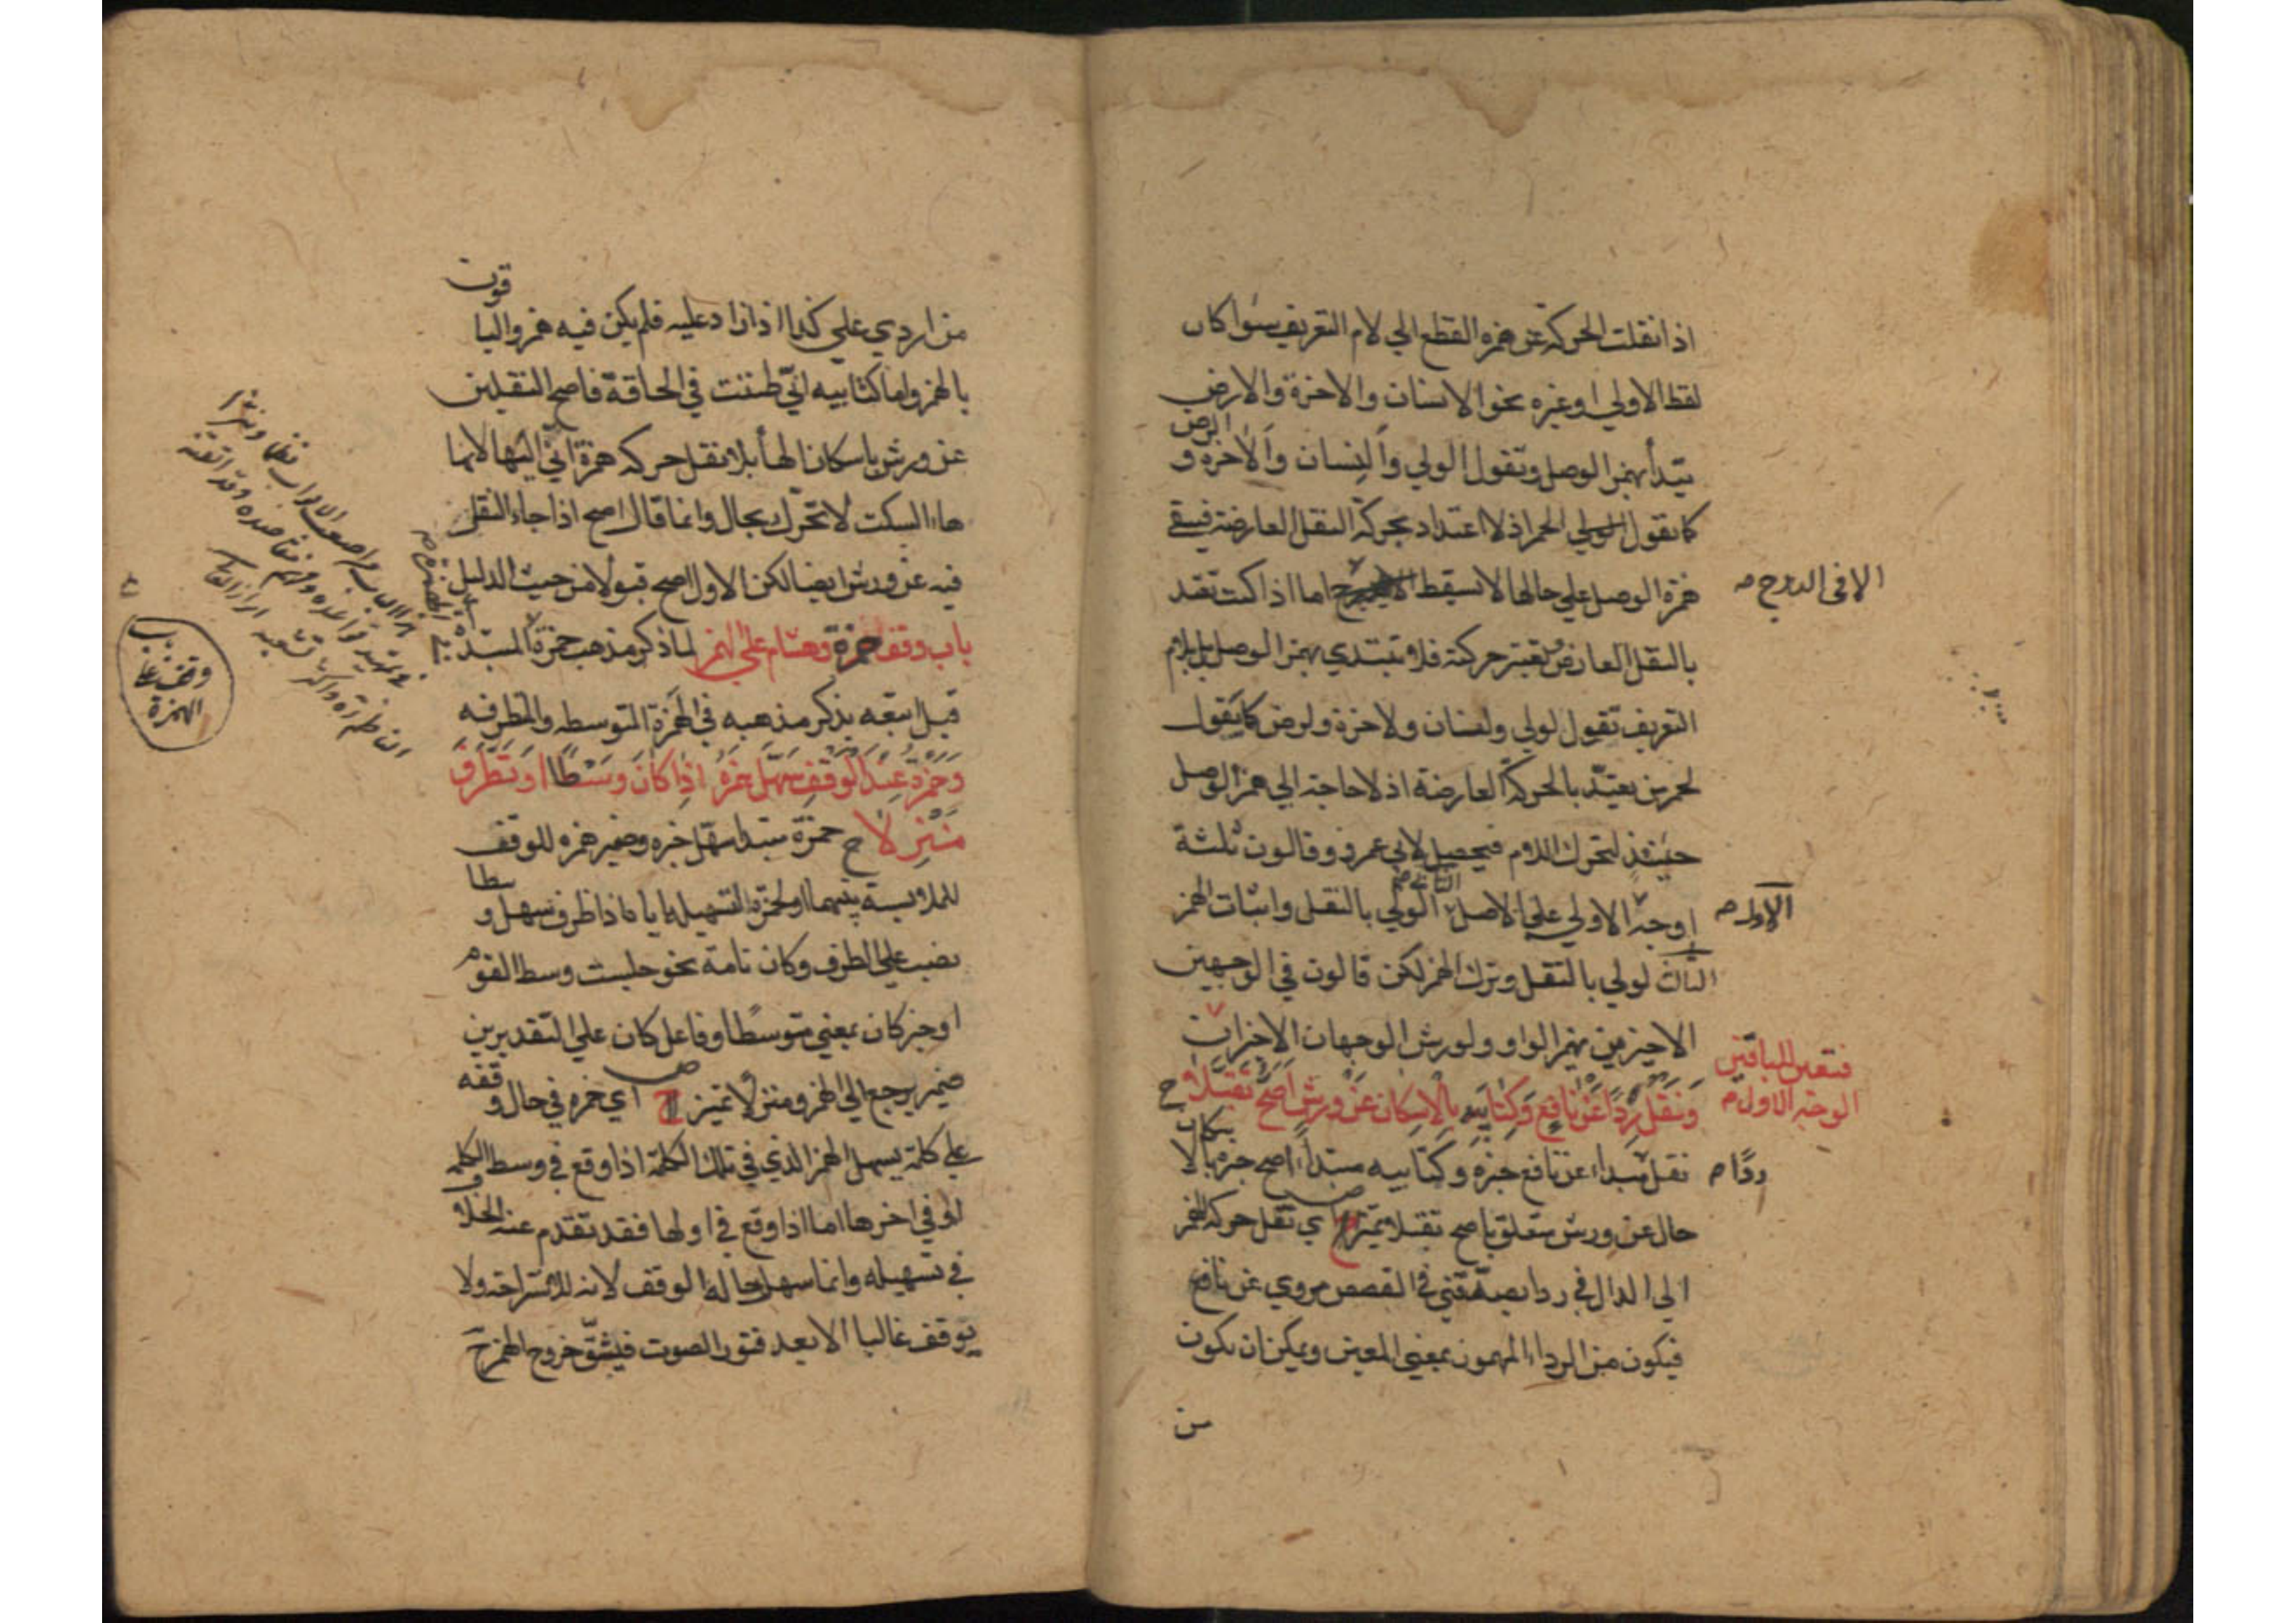 اذا نقلت الحركة عن همزه القطع الي لام التعريف سوا كان
لفظ الاولي او غيره نحو الانسان والاخرة والارض
يبتدأ بهمز الوصل وتقول الولي والنسان والاخرة و
الرض
كما تقول الحمر اذ لا اعتداد بحركة النقل العارضة فيبقي
همزة الوصل علي حالها لا تسقط اما اذا كنت تعتد
الا في الدرج صح
بالنقل العارض وتعتبر حركته فلا تبتدي بهمز الوصل بل بلام
التعريف تقول لولي ولنسان ولاخرة ولرض كما يقول
لحمر من يعتد بالحركة العارضة اذ لا حاجة الي همز الوصل
حينئذ لتحرك اللام فيحصل لابي عمرو وقالون ثلثة
اوجه الاولي علي الاصل الولي بالنقل واثبات الهمز
الاول صح
الثاني صح
الثالث لولي بالنقل وترك الهمز لكن قالون في الوجهين
الاخيرين يهمز الواو ولورش الوجهان الاخيران
فتعين للباقين
الوجه الاول صح
ونقل ردا عن نافع وكتابيه بالاسكان عن ورش اصح تقبلا ح
نقل مبتدا عن نافع خبره وكتابيه مبتدأ اصح خبره بالا
سكان
ردا صح
حال عن ورش متعلق باصح تقبلا تميز ص اي نقل حركة الهمز
الي الدال في ردا يصدقني في القصص مروي عن نافع
فيكون من الرداء المهموز بمعني المعين ويمكن ان يكون
من
من اردي علي كذا اذا زاد عليه فلم يكن فيه همز والباقون
بالهمز واما كتابيه اني ظننت في الحاقة فاصح النقلين
عن ورش باسكان الهأ بلا نقل حركه همزة اني اليها لانها
هاء السكت لا تحرك بحال وانما قال اصح اذا جاء النقل
فيه عن ورش ايضا لكن الاول اصح قبولا من حيث الدليل
باب وقف حمزة وهشام علي الهمز لما ذكر مذهب حمزة في الهمزة المبتدءة
قبل اتبعه بذكر مذهبه في الهمزة المتوسطه والمتطرفه
وحمزة عند الوقف سهل همزه اذا كان وسطا او تطرف
منزلا ح حمزة مبتدا سهل خبره وضمير همزه للوقف
للملابسة بينهما او لحمزة التسهيله اياها اذا ظرف سهل و
سطا
نصب علي الظرف وكان تامة نحو جلست وسط القوم
او خبر كان بمعني متوسطا وفاعل كان علي التقديرين
ضمير يرجع الي الهمز ومنزلا تميز ص اي همزه في حال وقفه
علي كلمة يسهل الهمز الذي في تلك الكلمة اذا وقع في وسط الكلمه
او في اخرها اما اذا وقع في اولها فقد تقدم عنه الخلاف
في تسهيله وانما سهل حالة الوقف لانه للاستراحة ولا
يوقف غالبا الا بعد فتور الصوت فيشق خروج الهمز ح
باب
وقف علي
الهمزة